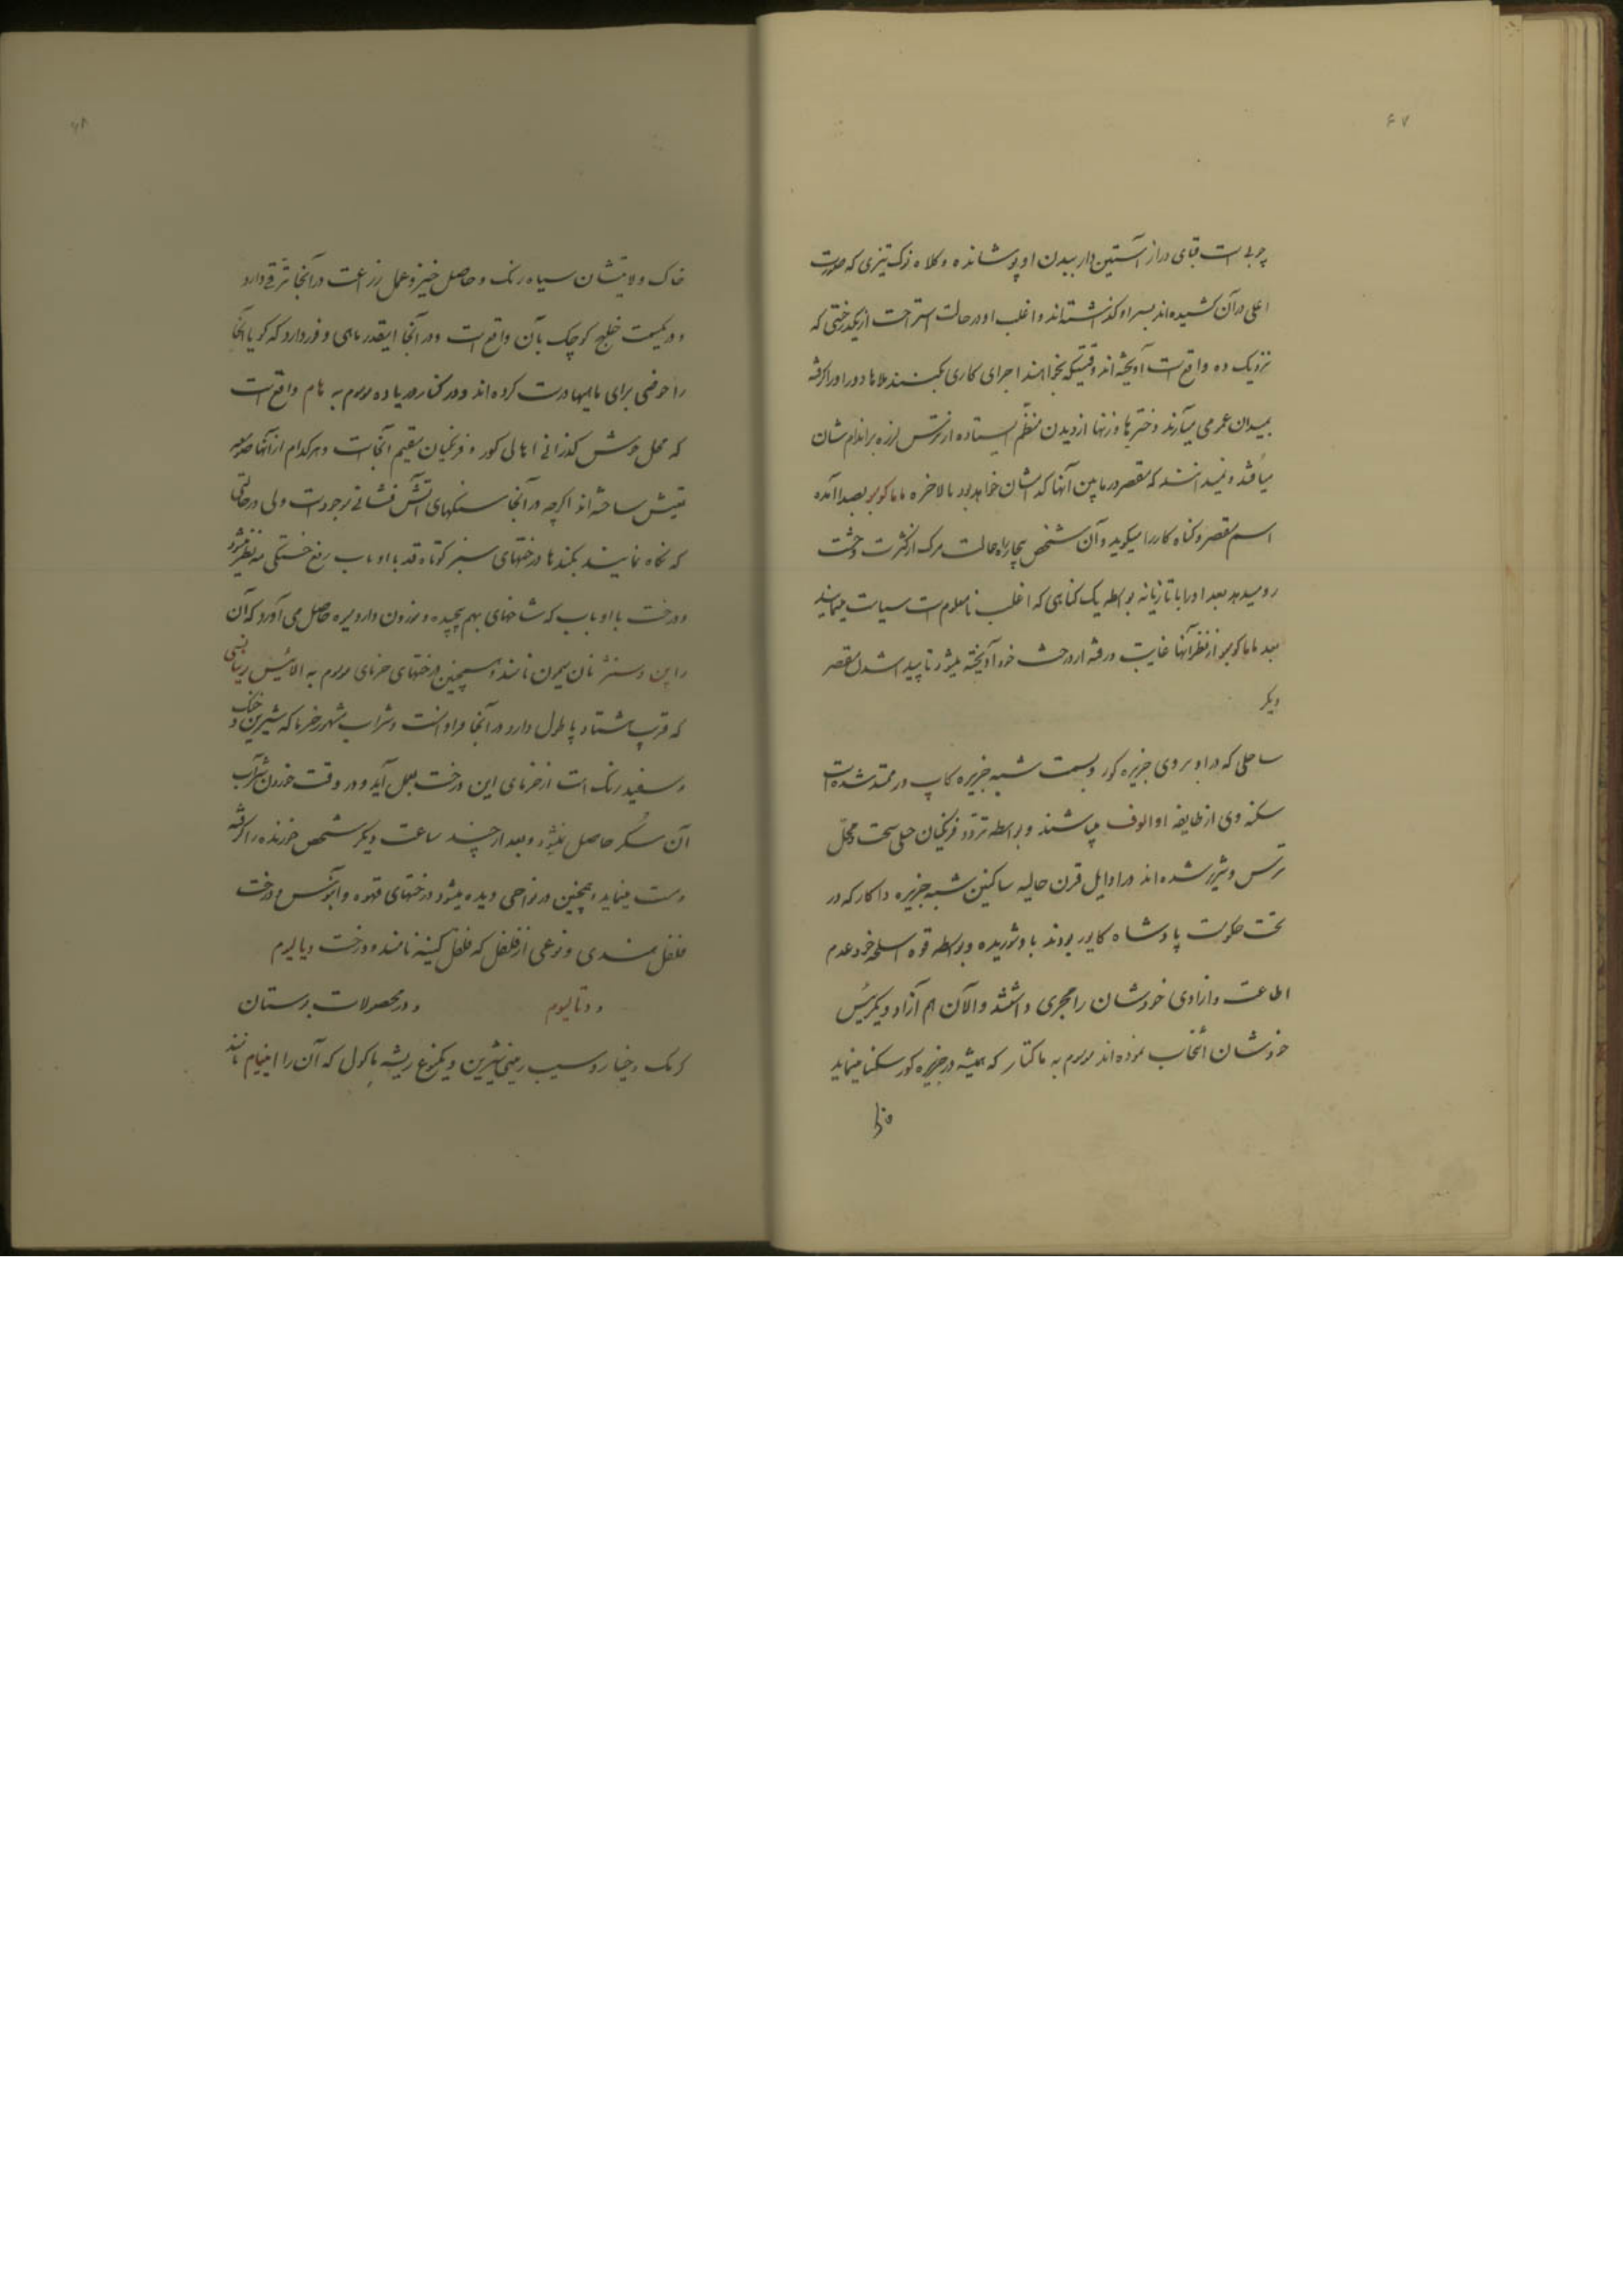 ۶۷
چوبی است قبای دراز آستین دار ببدن او پوشانده و کلاه نوک تیزی که صورت
اعلی در آن کشیده اند بسر او گذاشته اند و اغلب او در حالت استراحت از یکدرختی که
نزدیک ده واقع است آویخته اند وقتیکه بخواهند اجرای کاری بکنند ملاها دور او را گرفته
بمیدان عمومی میآرند دخترها و زنها از دیدن منظم ایستاده از ترس لرزه بر اندام شان
میافتد و نمیدانند که مقصر در مابین آنها کدامشان خواهد بود بالاخره ماماکومبو بصدا آمده
اسم مقصر و گناه کار را میگوید و آن شخص بیچاره حالت مرگ از کثرت وحشت
رو میدهد بعد او را با تازیانه بواسطه یک گناهی که اغلب نامعلوم است سیاست مینمایند
بعد ماماکومبو از نظر آنها غایب و رفته از درخت خود آویخته میشود تا پیدا شدن مقصر
دیگر
ساحلی که در او بروی جزیره کور و بسمت شبه جزیره کاپ ور ممتد شده است
سکنه وی از طایفه اوالوف میباشند و بواسطه تردد فرنگیان خیلی سخت و
ترس و شریر شده اند در اوایل قرن حالیه ساکنین شبه جزیره داکار که در
تحت حکومت پادشاه کایور بودند باو شوریده و بواسطه قوه اسلحه خود عدم
اطاعت و ازادی خودشان را مجری داشتند و الآن هم آزاد و یکرئیس
خودشان انتخاب نموده اند موسوم به ماکتار که همیشه در جزیره کور سکنا مینماید
۶۸
خاک ولایتشان سیاه رنک و حاصل خیز و عمل زراعت در آنجا ترقی دارد
و در یکسمت خلیج کوچک بآن واقع است و در آنجا اینقدر ماهی وفور دارد که گویا آنجا
را حوضی برای ماهیها درست کرده اند و در کنار دریا ده موسوم به هام واقع است
که محل خوش گذرانی اهالی کور و فرنگیان مقیم آنجاست و هر کدام از آنها
عیش ساخته اند اگرچه در آنجا سنگهای آتش فشانی موجود است ولی در حالتی
که نگاه نمایند بگنبدها درختهای سبز کوتاه قد بااوباب رفع خستگی منظر میشود
درخت بااوباب که شاخهای بهم پیچیده و موزون دارد میوه حاصل می آورد که آن
را پن دسنژ نان میمون نامند و همچنین درختهای خرمای موسوم به الائیس
که قریب هشتاد پا طول دارد در آنجا فراوانست و شراب مشهور خرما که شیرین و خنک
و سفید رنک است از خرمای این درخت بعمل آید و در وقت خوردن شراب
آن سُکر حاصل نمیشود و بعد از چند ساعت دیگر شخص خورنده را گرفته
مست مینماید و همچنین در نواحی دیده میشود درختهای قهوه و آبنوس و درخت
فلفل هندی و نوعی از فلفل که فلفل گینه نامند و درخت دیالیوم
و دتالیوم و در محصولات بوستان
کرمک و خیار و سیب زمینی شیرین و یکنوع ریشه ماکول که آن را اینیام نامند